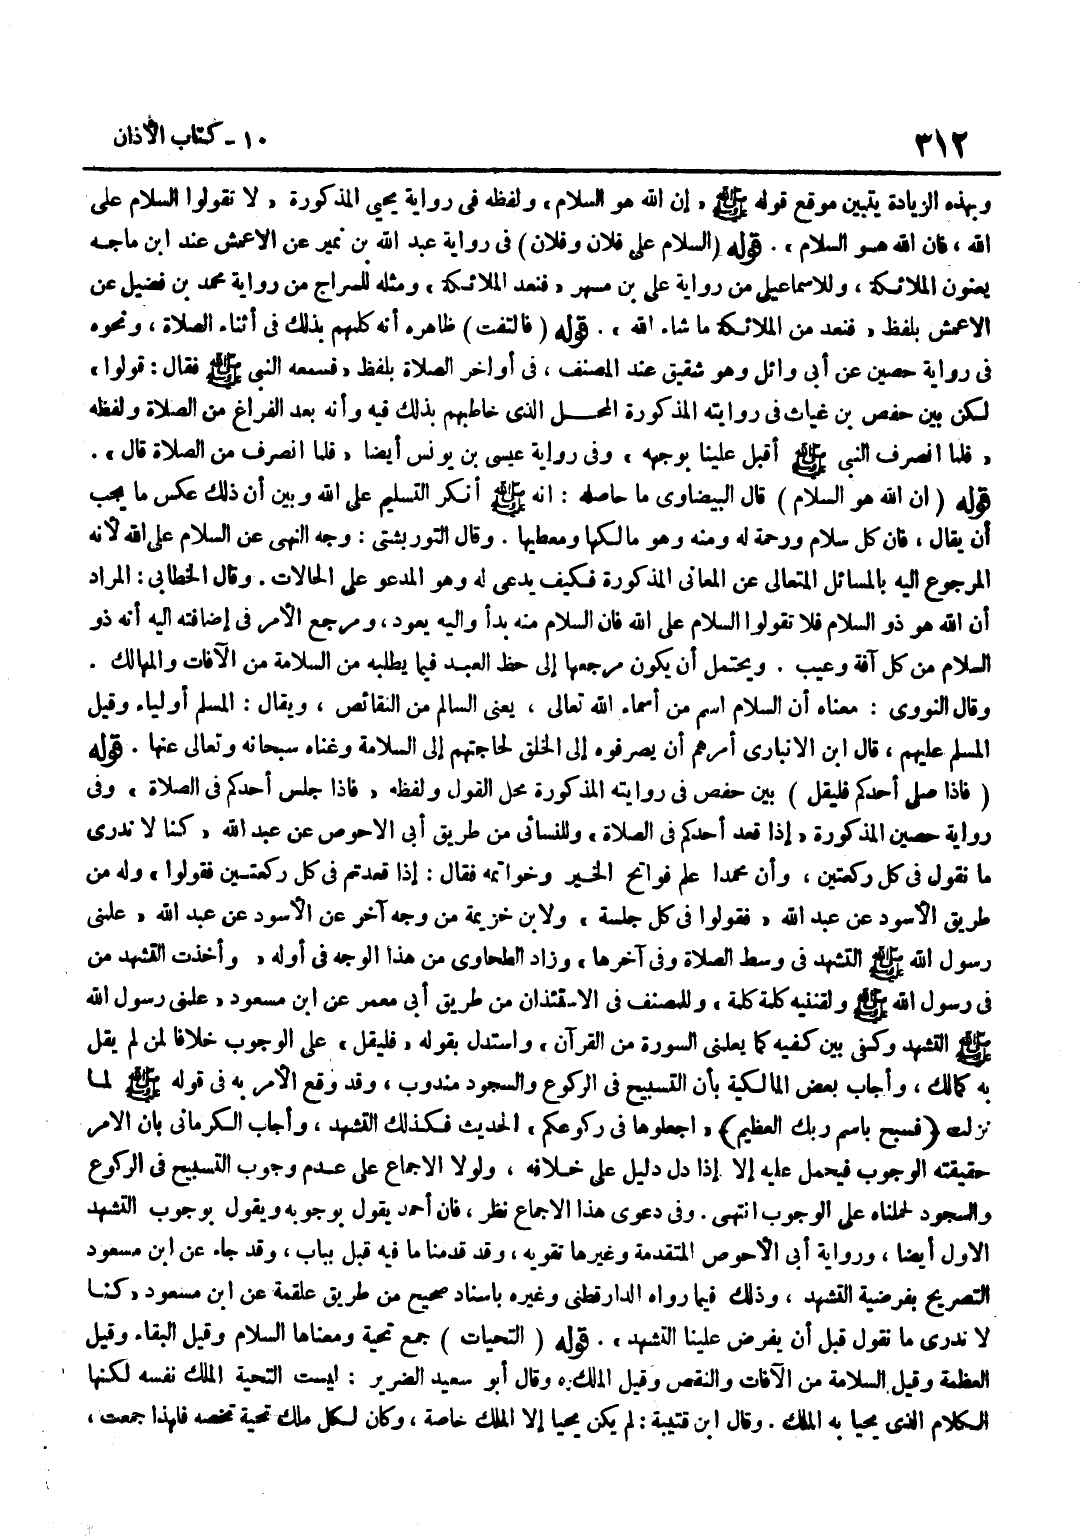 ٣١٢ ١٠ - كتاب الأذان
وبهذه الزيادة يتبين موقع قوله ﷺ « إن الله هو السلام » ولفظه فى رواية يحيى المذكورة « لا تقولوا السلام على
الله ، فان الله هـو السلام » . قوله (السلام على فلان وفلان) فى رواية عبد الله بن نمير عن الاعمش عند ابن ماجـه
يعنون الملائكة ، وللاسماعيلى من رواية على بن مسهر « فنعد الملائكة » ومثله للسراج من رواية محمد بن فضيل عن
الاعمش بلفظ « فنعد من الملائكة ما شاء الله » . قوله ( فالتفت) ظاهره أنه كلمهم بذلك فى أثناء الصلاة ، ونحوه
فى رواية حصين عن أبى وائل وهو شقيق عند المصنف ، فى أواخر الصلاة بلفظ « فسمعه النبى ﷺ فقال : قولوا »
لكن بين حفص بن غياث فى روايته المذكورة المحـل الذى خاطبهم بذلك فيه وأنه بعد الفراغ من الصلاة ولفظه
« فلما انصرف النبى ﷺ أقبل علينا بوجهه » وفى رواية عيسى بن يونس أيضا « فلما انصرف من الصلاة قال » .
قوله ( ان الله هو السلام ) قال البيضاوى ما حاصله : انه ﷺ أنكر التسليم على الله وبين أن ذلك عكس ما يجب
أن يقال ، فان كل سلام ورحمة له ومنه وهو مالكها ومعطيها . وقال التوربشتى : وجه النهى عن السلام على الله لأنه
المرجوع اليه بالمسائل المتعالى عن المعانى المذكورة فكيف يدعى له وهو المدعو على الحالات . وقال الخطابى : المراد
أن الله هو ذو السلام فلا تقولوا السلام على الله فان السلام منه بدأ واليه يعود ، ومرجع الأمر فى إضافته اليه أنه ذو
السلام من كل آفة وعيب . ويحتمل أن يكون مرجعها إلى حظ العبـد فيما يطلبه من السلامة من الآفات والمهالك .
وقال النووى : معناه أن السلام اسم من أسماء الله تعالى ، يعنى السالم من النقائص ، ويقال : المسلم أولياءه وقيل
المسلم عليهم ، قال ابن الانبارى أمرهم أن يصرفوه إلى الخلق لحاجتهم إلى السلامة وغناه سبحانه وتعالى عنها . قوله
( فاذا صلى أحدكم فليقل ) بين حفص فى روايته المذكورة محل القول ولفظه « فاذا جلس أحدكم فى الصلاة » وفى
رواية حصين المذكورة « إذا قعد أحدكم فى الصلاة » وللنسائى من طريق أبى الاحوص عن عبد الله « كنا لا ندرى
ما نقول فى كل ركعتين ، وأن محمدا علم فواتح الخـير وخواتمه فقال : إذا قعدتم فى كل ركعتـين فقولوا » وله من
طريق الأسود عن عبد الله « فقولوا فى كل جلسة » ولابن خزيمة من وجه آخر عن الأسود عن عبد الله « علمنى
رسول الله ﷺ التشهد فى وسط الصلاة وفى آخرها » وزاد الطحاوى من هذا الوجه فى أوله « وأخذت التشهد من
فى رسول الله ﷺ ولقننيه كلمة كلمة » وللمصنف فى الاستئذان من طريق أبى معمر عن ابن مسعود « علمنى رسول الله
ﷺ التشهد وكفى بين كفيه كما يعلمنى السورة من القرآن » واستدل بقوله « فليقل » على الوجوب خلافا لمن لم يقل
به كمالك ، وأجاب بعض المالكية بأن التسبيح فى الركوع والسجود مندوب ، وقد وقع الأمر به فى قوله ﷺ لمـا
نزلت ﴿فسبح باسم ربك العظيم﴾ « اجعلوها فى ركوعكم » الحديث فكذلك التشهد ، وأجاب الكرمانى بان الامر
حقيقته الوجوب فيحمل عليه إلا إذا دل دليل على خـلافه ، ولولا الاجماع على عـدم وجوب التسبيح فى الركوع
والسجود لحملناه على الوجوب انتهى . وفى دعوى هذا الاجماع نظر ، فان أحمد يقول بوجوبه ويقول بوجوب التشهد
الاول أيضا ، ورواية أبى الأحوص المتقدمة وغيرها تقويه ، وقد قدمنا ما فيه قبل بباب ، وقد جاء عن ابن مسعود
التصريح بفرضية التشهد ، وذلك فيما رواه الدارقطنى وغيره باسناد صحيح من طريق علقمة عن ابن مسعود « كنـا
لا ندرى ما نقول قبل أن يفرض علينا التشهد » . قوله ( التحيات ) جمع تحية ومعناها السلام وقيل البقاء وقيل
العظمة وقيل السلامة من الآفات والنقص وقيل الملك. وقال أبو سعيد الضرير : ليست التحية الملك نفسه لكنها
الكلام الذى يحيا به الملك . وقال ابن قتيبة : لم يكن يحيا إلا الملك خاصة ، وكان لكل ملك تحية تخصه فلهذا جمعت ،